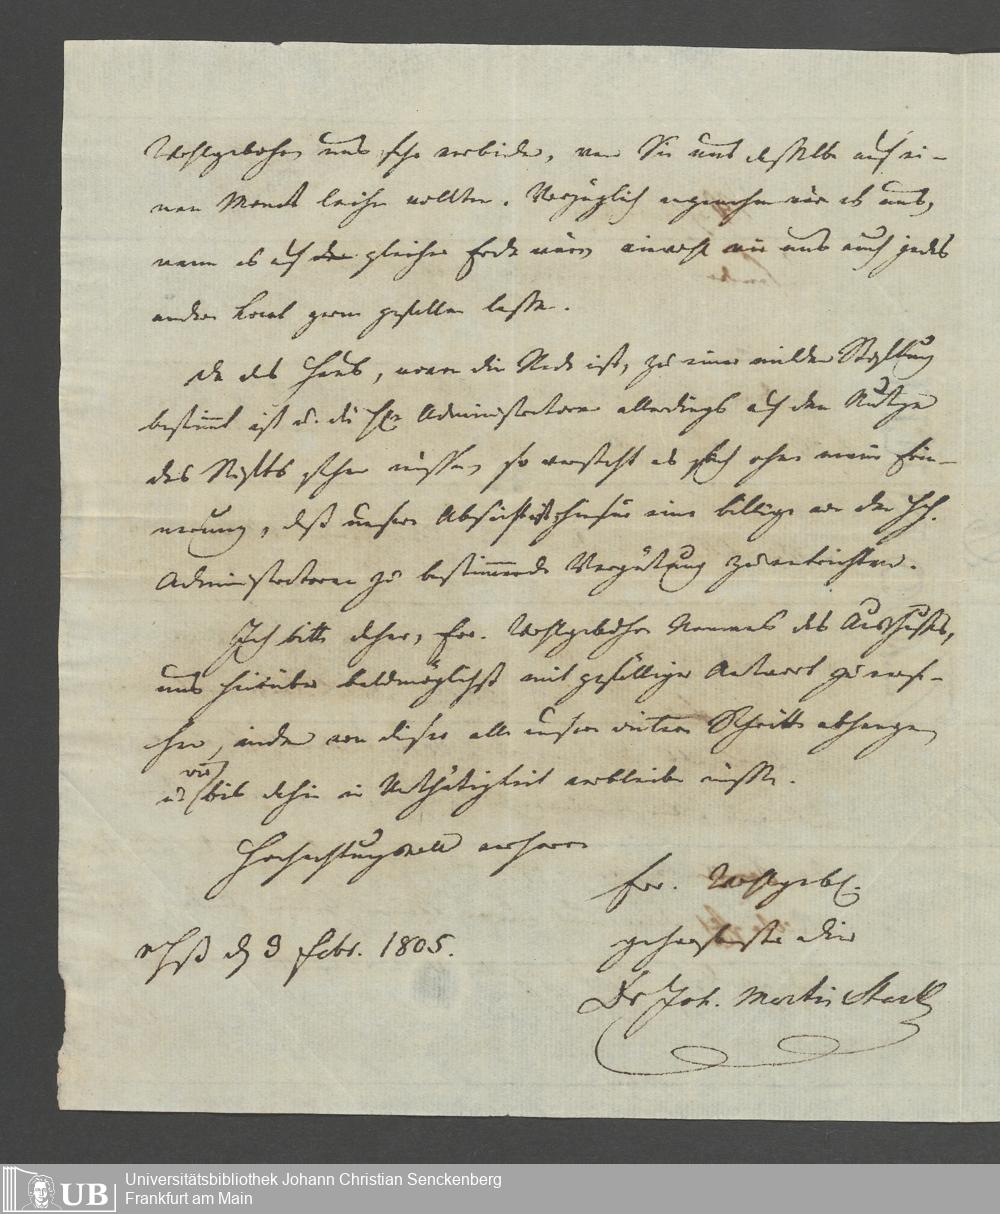 Wohlgebohrn uns sehr verbinden, wenn Sie uns dasselbe auf ei-
nen Monat leihen wollten. Vorzüglich angenehm wäre es uns,
wenn es auf der gleichen Erde wäre, wiewohl wir uns auch jedes
andere Local gern gefallen lassen.
Da das Haus, wovon die Rede ist, zu einer milden Stiftung
bestimmt ist u. die H. Administratoren allerdings auf den Nutzen
des Stifts sehen müssen, so versteht es sich ohne meine Erin-
nerung, daß unsere Absicht ist hiefür eine billige von den HH.
Administratoren zu bestimmende Vergütung zu entrichten.
Ich bitte daher, Ew. Wohlgebohrn Namens des Ausschusses,
uns hierüber baldmöglichst mit gefälliger Antwort zu verse-
hen, indem von dieser alle unsere weitern Schritte abhangen,
u. wir bis dahin in Unthätigkeit verbleiben müssen.
Hochachtungsvoll verharre
Ew. Wohlgeb.
gehorsamster Dier
Dr Joh. Martin Starck
d 9 Febr. 1805.
UB
Universitätsbibliothek Johann Christian Senckenberg
Frankfurt am Main